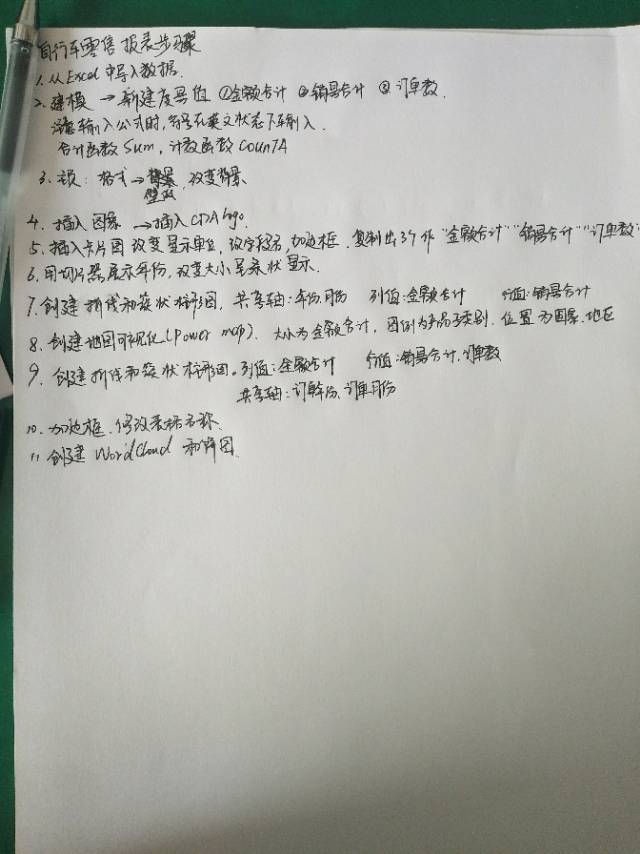 自行车零售报表步骤
1. 从Excel中导入数据.
2. 建模 → 新建度量值 ①金额合计 ②销量合计 ③订单数.
注意输入公式时,符号在英文状态下输入.
合计函数Sum,计数函数CounTA
3. 页: 格式→背景, 改变背景.
壁纸
4. 插入图象 → 插入CDA logo.
5. 插入卡片图 改变显示单位, 改字段名, 加边框. 复制出3个作"金额合计""销量合计""订单数"
6. 用切片器展示年份, 改变大小 显示.
7. 创建折线和簇状柱形图, 共享轴:年份,月份 列值:金额合计 行值:销量合计
8. 创建地图可视化(Power map). 大小为金额合计, 图例为产品子类别, 位置为国家、地区
9. 创建折线和簇状柱形图. 列值:金额合计 行值:销量合计,订单数
共享轴:订单年份、订单月份
10. 加边框. 修改表标名称.
11. 创建WordCloud 和饼图.